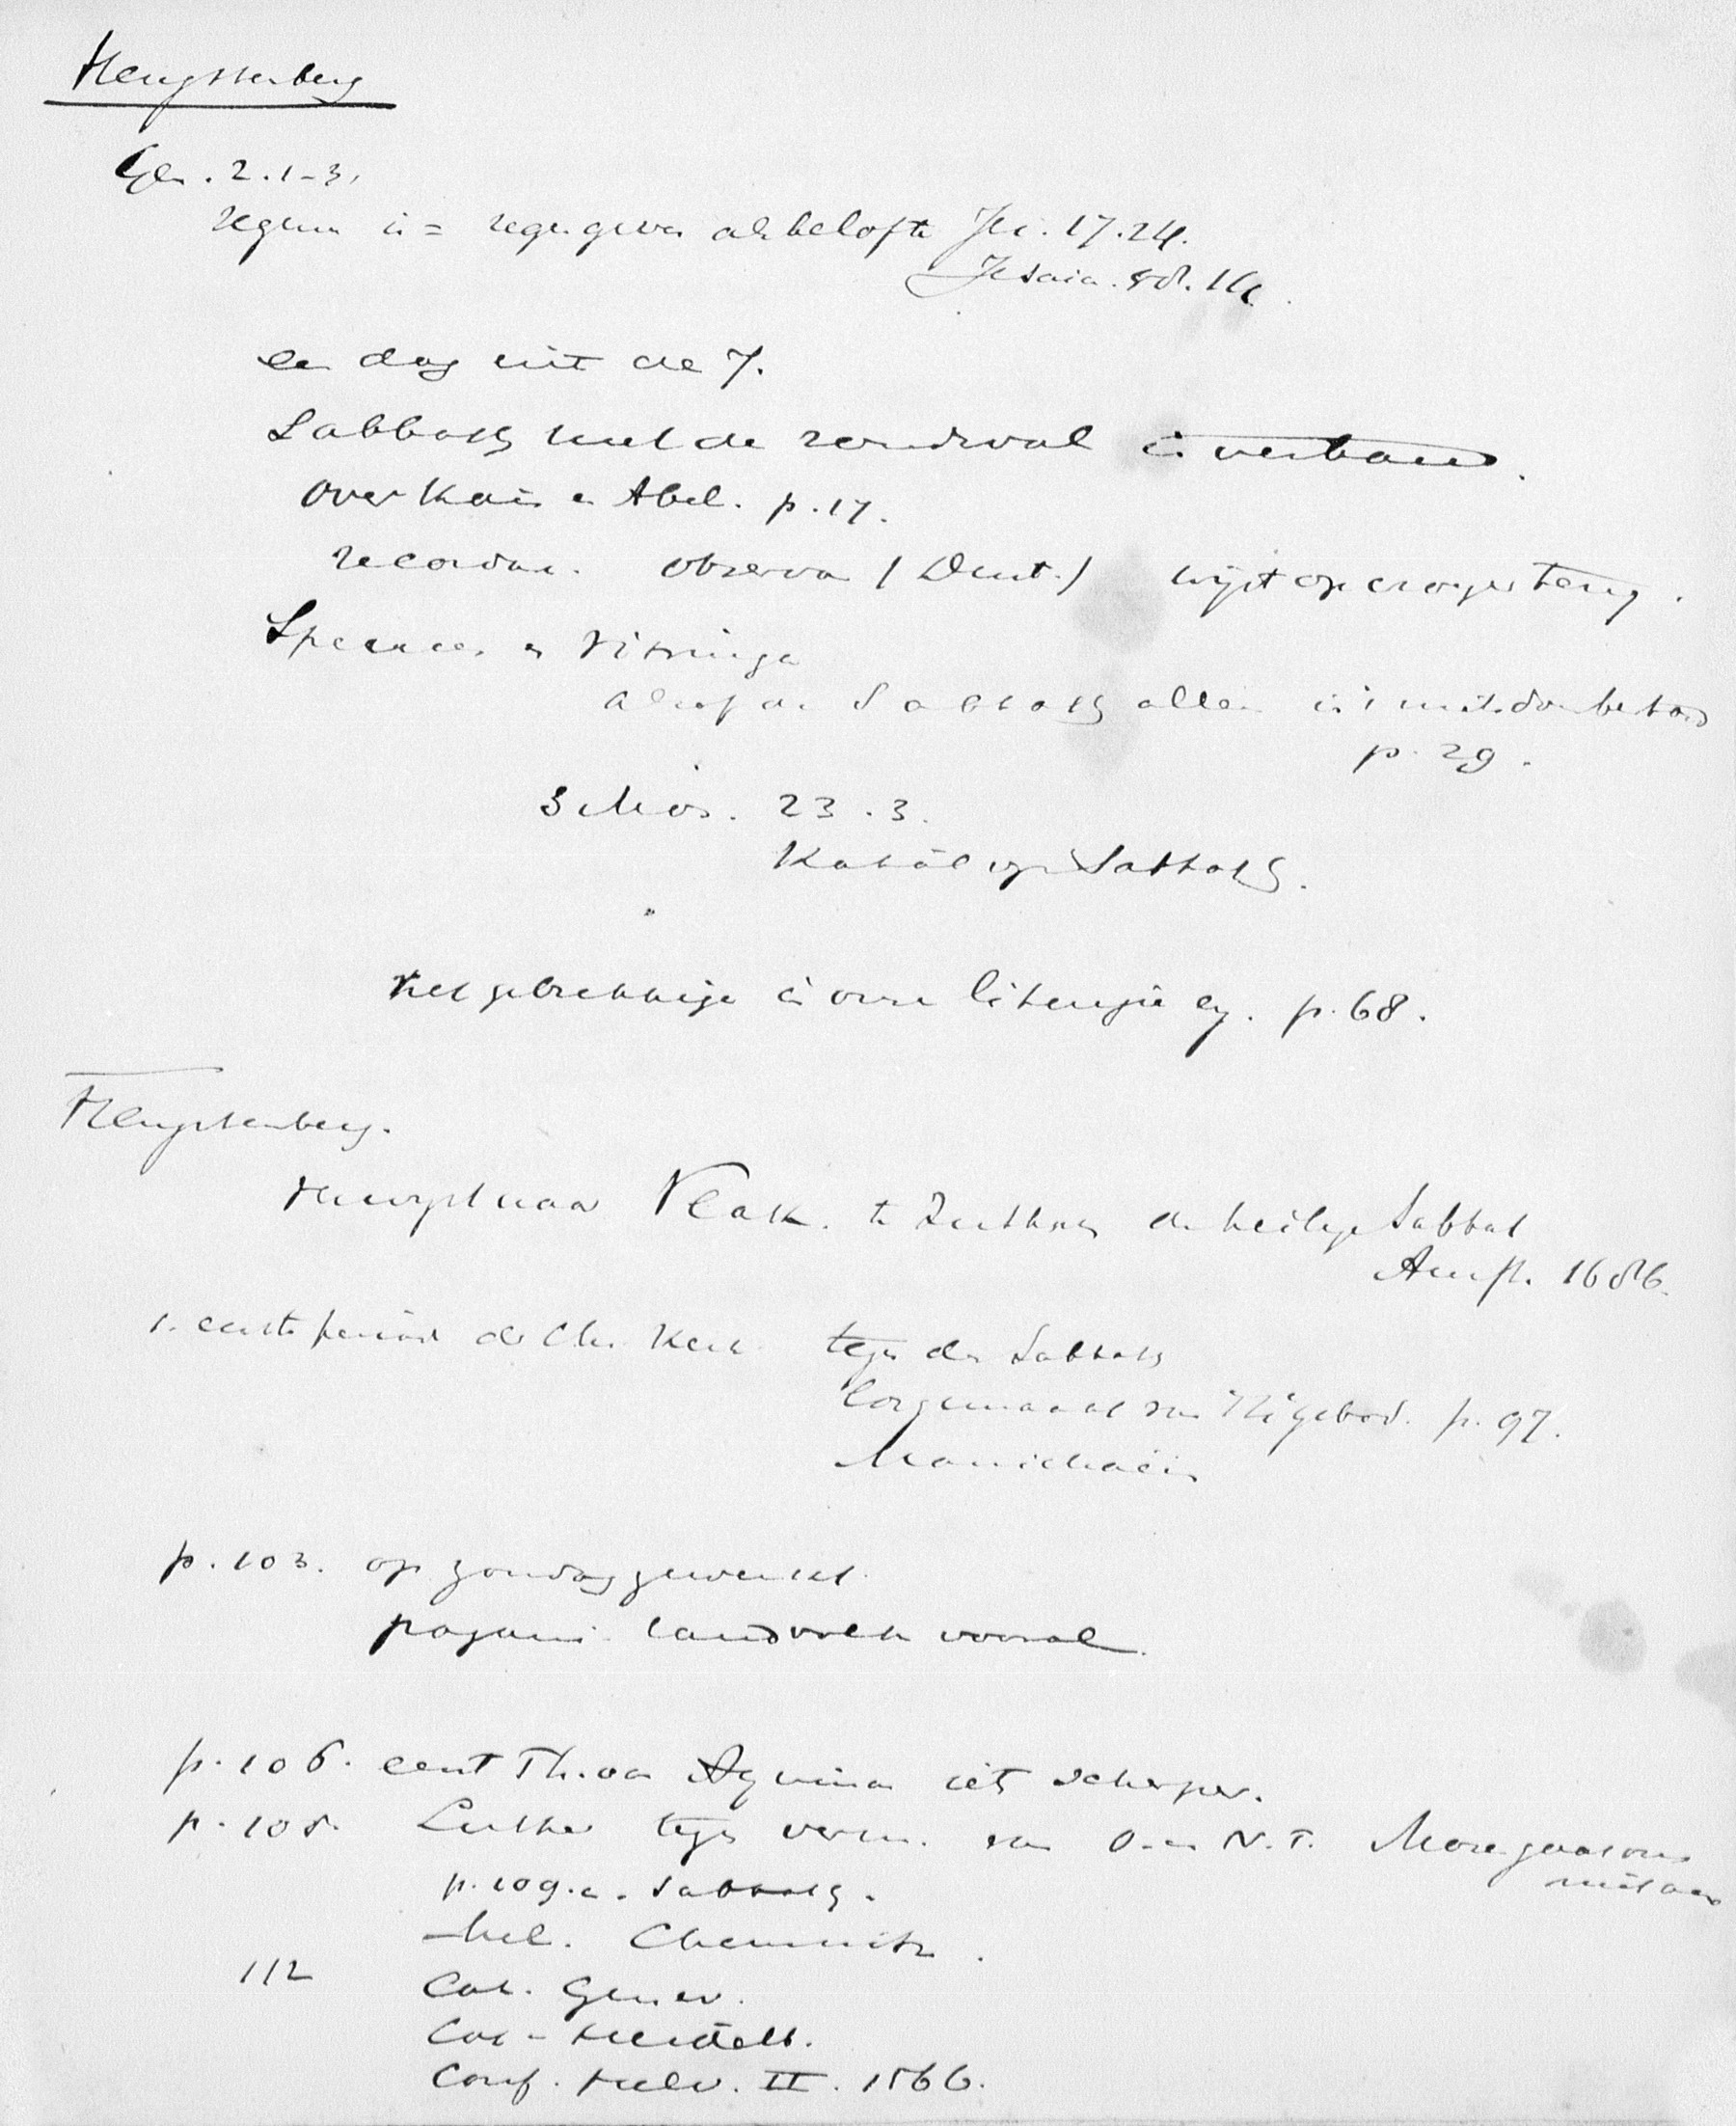 Hengstenberg
Gen. 2.1-3.
zegen is = zegen geven als belofte Jer. 17.24.
Jesaia. 48. 16.
een dag uit de 7.
Sabbath met de zondeval in verband.
over Kain en Abel. p. 17.
recordare. observa (Deut.) wijst op vroeger terug.
Spencer en Vitringa
alsof de Sabbath alleen in bestond
p. 29.
3 Mos. 23.3.
Kahal op Sabbath.
Het gebrekkige in onze liturgie eg. p. 68.
Hengstenberg.
Verwijst naar Vlak. te Zutphen de heilige Sabbat
Amst. 1686.
1. eerste periode der Chr. Kerk tegen den Sabbath
losgemaakt van 't 4e gebod. p. 97.
Manichaein
p. 103. op zondag gewerkt.
pagani landvolk vooral.
p. 106. eerst Th. van Aquino iets scherper.
p. 108. Luther tegen verm. van O. en N.T. Mozes gaat ons
niet aan
p. 109. a. Sabbath.
Mel. Chemnitz.
112 Cat. Genev.
Cat - Heidelb.
Conf. Helv. II. 1566.